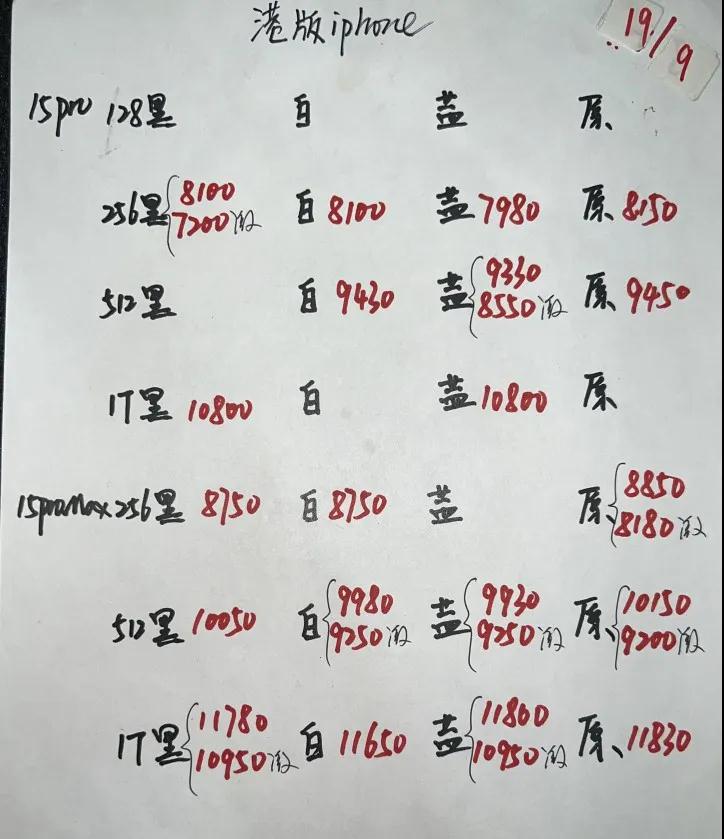 港版iphone
19/9
15pro 128黑 白 蓝 原
256黑 8100 7200激 白 8100 蓝 7980 原 8150
512黑 白 9430 蓝 9330 8550激 原 9450
1T黑 10800 白 蓝 10800 原
15promax 256黑 8750 白 8750 蓝 原 8850 8180激
512黑 10050 白 9980 9250激 蓝 9930 9250激 原 10150 9200激
1T黑 11780 10950激 白 11650 蓝 11800 10950激 原 11830